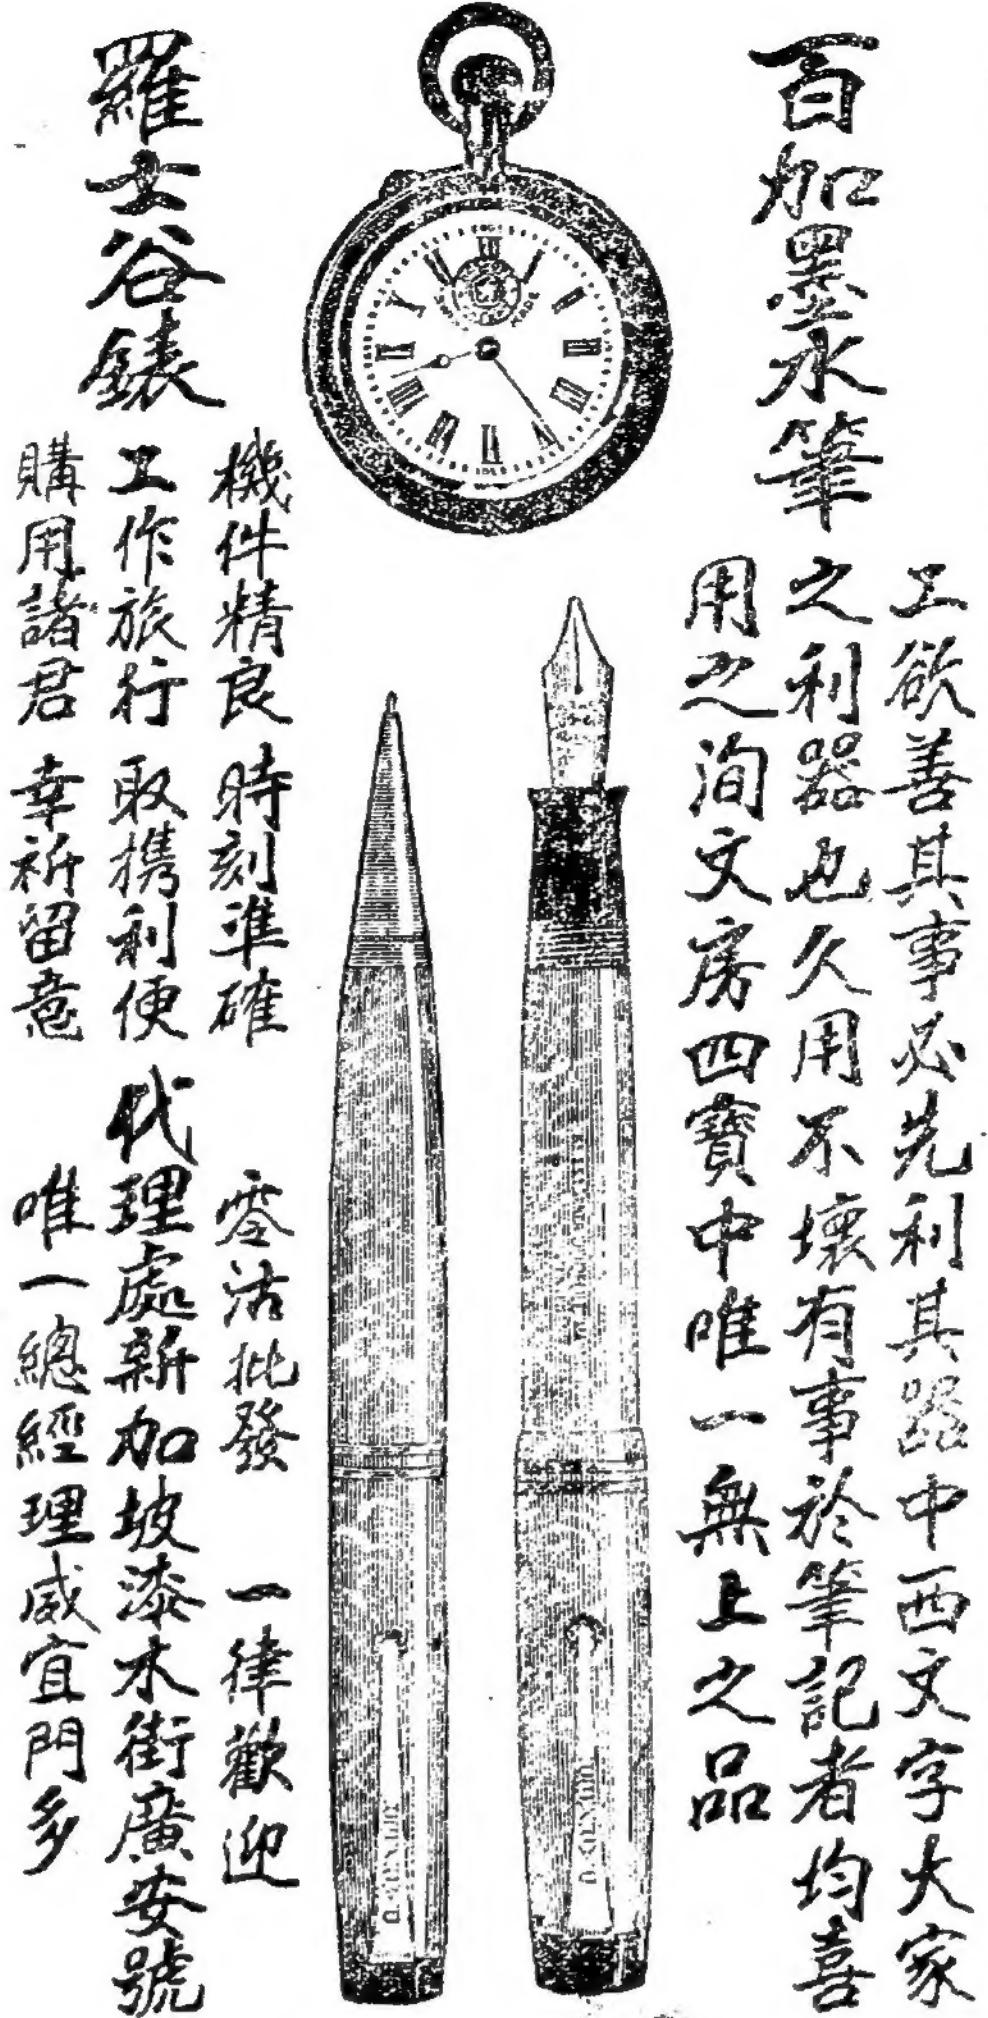 百加墨水筆
工欲善其事必先利其器中西文字大家
之利器也久用不壞有事於筆記者均喜
用之洵文房四寶中唯一無上之品
羅士谷錶
機件精良時刻準確
工作旅行取携利便
購用諸君幸祈留意
零沽批發 一律歡迎
代理處新加坡漆木街廣安號
唯一總經理威宜門多